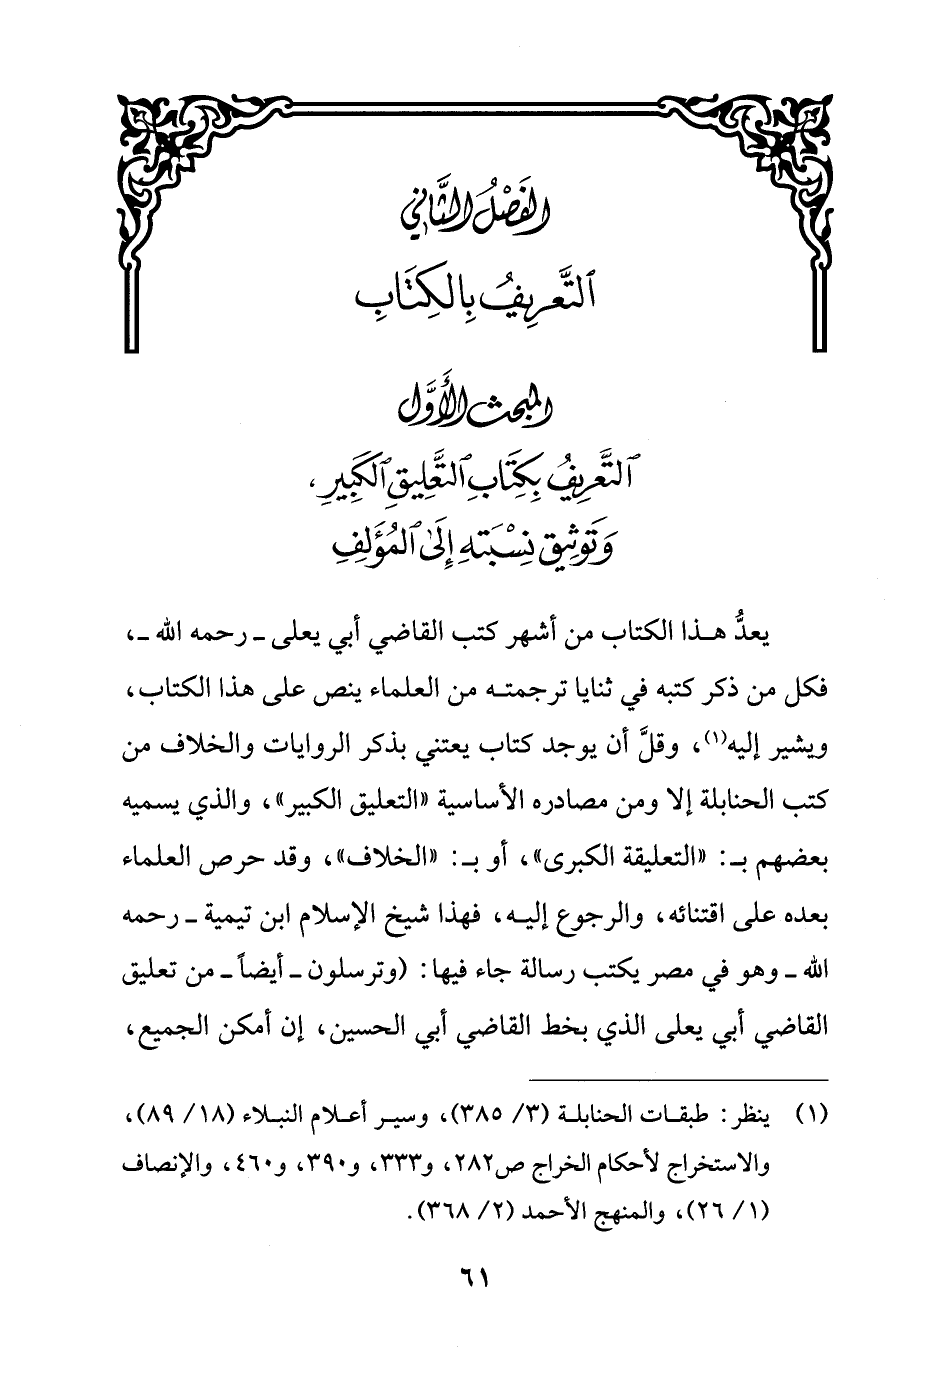 الفَصْلُ الثَّاني
التَّعريفُ بِالكِتَابِ
المبحث الأوَّل
التَّعْرِيفُ بِكِتَابِ التَّعْلِيقِ الكَبِيرِ،
وَتَوثِيق نِسْبَتهِ إِلىٰ المُؤَلِفِ
يعدُّ هـذا الكتاب من أشهر كتب القاضي أبي يعلى ـ رحمه الله ـ،
فكل من ذكر كتبه في ثنايا ترجمتـه من العلماء ينص على هذا الكتاب،
ويشير إليه(١)، وقلَّ أن يوجد كتاب يعتني بذكر الروايات والخلاف من
كتب الحنابلة إلا ومن مصادره الأساسية «التعليق الكبير»، والذي يسميه
بعضهم بـ: «التعليقة الكبرى»، أو بـ: «الخلاف»، وقد حرص العلماء
بعده على اقتنائه، والرجوع إليـه، فهذا شيخ الإسلام ابن تيمية ـ رحمه
الله ـ وهو في مصر يكتب رسالة جاء فيها: (وترسلون ـ أيضاً ـ من تعليق
القاضي أبي يعلى الذي بخط القاضي أبي الحسين، إن أمكن الجميع،
(١) ينظر: طبقـات الحنابلـة (٣/ ٣٨٥)، وسيـر أعـلام النبـلاء (١٨/ ٨٩)،
والاستخراج لأحكام الخراج ص٢٨٢، و٣٣٣، و٣٩٠، و٤٦٠، والإنصاف
(١/ ٢٦)، والمنهج الأحمد (٢/ ٣٦٨).
٦١